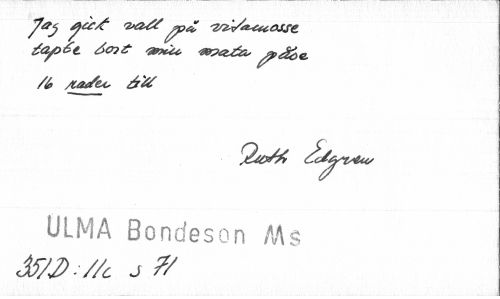 Jag gick vall på vitamosse
tapte bort min mata påse
16 rader till
Ruth Edgren
ULMA Bondeson Ms
351D:11c s 71